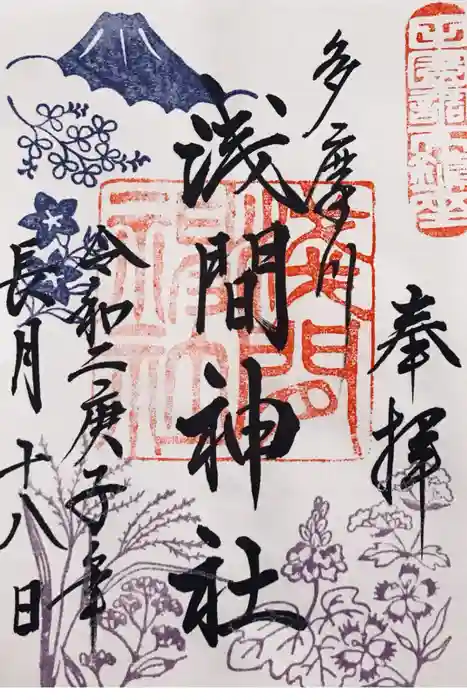 奉拝
多摩川
浅間神社
令和二庚子年
長月十八日
淺間
神社